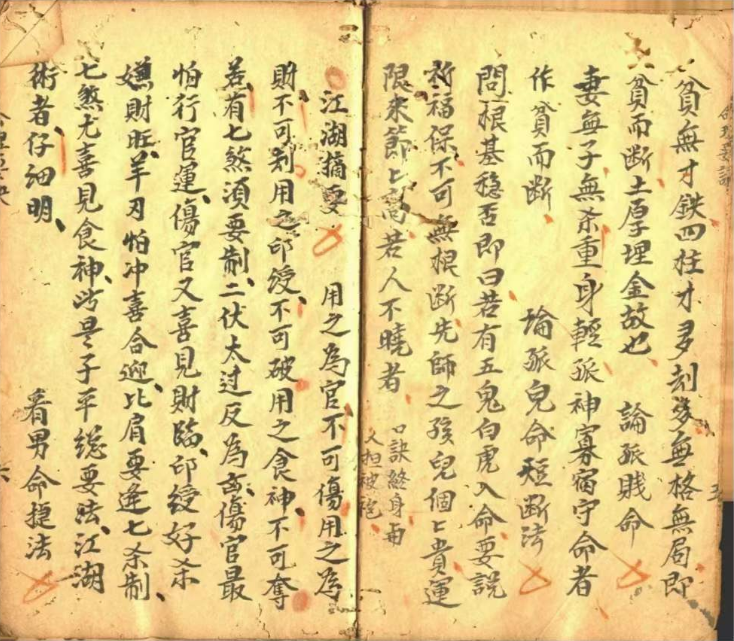 貧無才鉄四柱才多刻妻無格無局即
貧而断土厚埋金故也 論孤賎命
妻無子無杀重身輕孤神寡宿守命者
作貧而断 論孤兒命短断法
問根基稳否即曰若有五鬼白虎入命要説
祈福保不可無根断先師之孩兒個々貴運
限來節々高若人不曉者
口訣終身毋
江湖摘要 用之為官不可傷用之為
財不可刦用之印绶不可破用之食神不可奪
若有七煞須要制二伏太过反為凶傷官最
怕行官運傷官又喜見財臨印绶好杀
嫌財旺羊刃怕冲喜合迎比肩要逢七杀制
七煞尤喜見食神此是子平総要法江湖
術者仔细明 看男命捷法